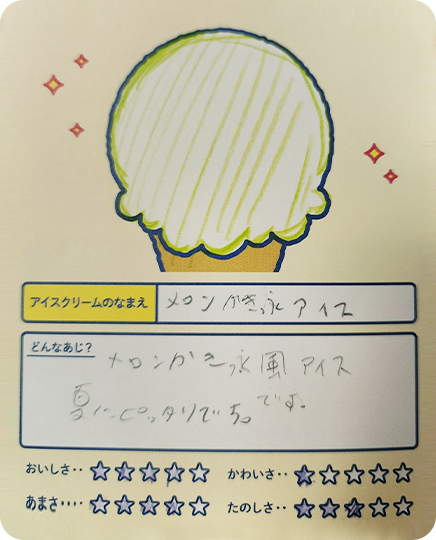 アイスクリームのなまえ
メロンかき氷アイス
どんなあじ?
メロンかき氷風アイス
です。
夏にピッタリで
おいしさ‥
かわいさ‥
あまさ‥‥
たのしさ‥